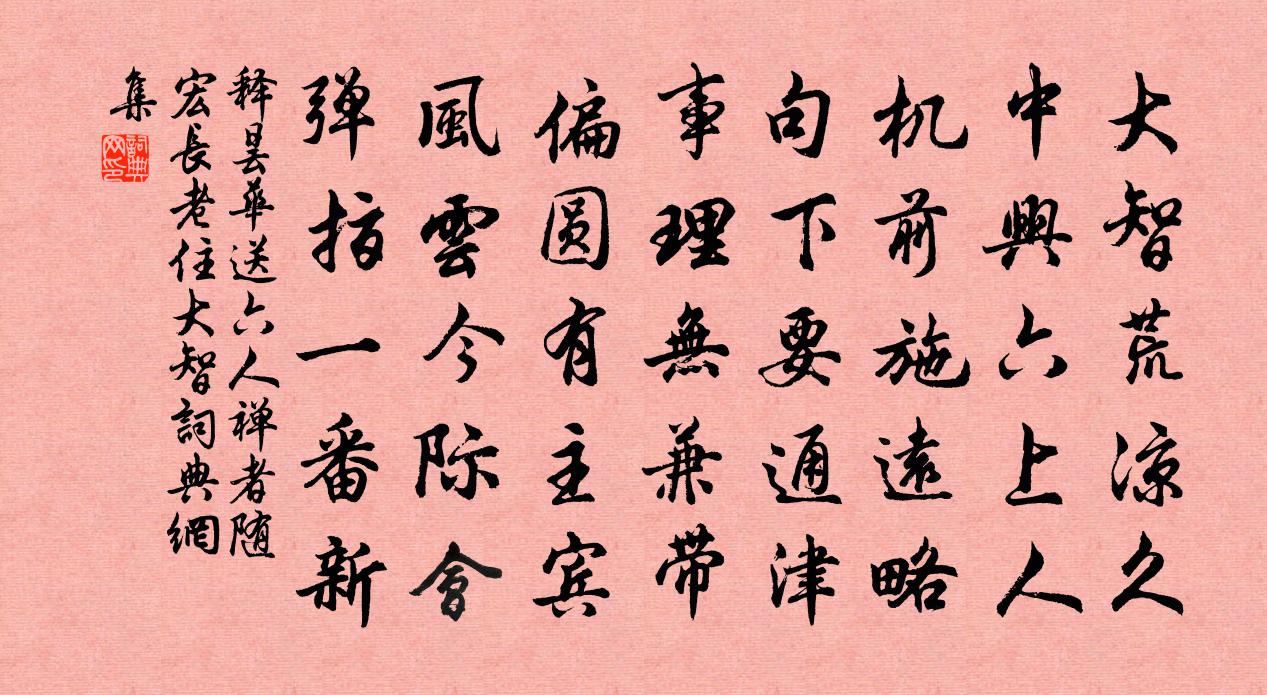 大智荒凉久
中興六上人
机前施遠略
句下要通津
事理無兼带
偏圆有主宾
風雲今际會
弹指一番新
释昙華送六人禅者随
宏長老住大智詞典網
集
詞典网印